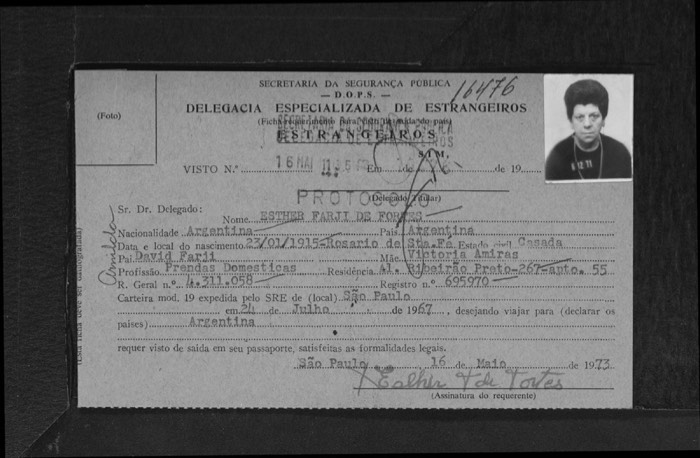 SECRETARIA DA SEGURANÇA PÚBLICA
— D.O.P.S. —
16476
DELEGACIA ESPECIALIZADA DE ESTRANGEIROS
(Foto)
ESTRANGEIROS
SIM,
VISTO N.º 16 MAI 11 35 Em de de 19
PROTOCOLO
(Delegado Titular)
Sr. Dr. Delegado:
Nome ESTHER FARJI DE FORTES
Nacionalidade Argentina País Argentina
Data e local do nascimento 23/01/1915-Rosario de Sta.Fé Estado civil Casada
Pai David Farji Mãe Victoria Amiras
Profissão Prendas Domesticas Residência Al. Ribeirão Preto-267-apto. 55
R. Geral n.º 4.311.058 Registro n.º 695970
Carteira mod. 19 expedida pelo SRE de (local) São Paulo
em 24 de Julho de 1967, desejando viajar para (declarar os
países) Argentina
requer visto de saída em seu passaporte, satisfeitas as formalidades legais.
São Paulo, 16 de Maio de 1973
Esther F de Fortes
(Assinatura do requerente)